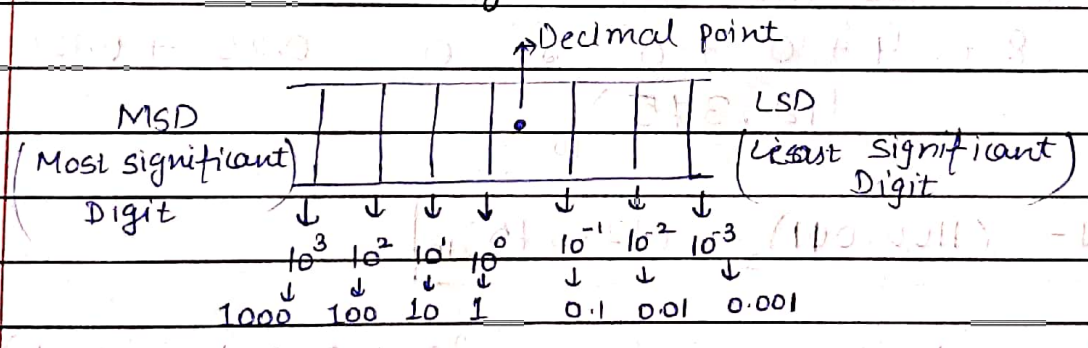 Decimal point
MSD
(Most significant)
Digit
LSD
(Least significant)
Digit
10³ 10² 10¹ 10⁰ 10⁻¹ 10⁻² 10⁻³
1000 100 10 1 0.1 0.01 0.001